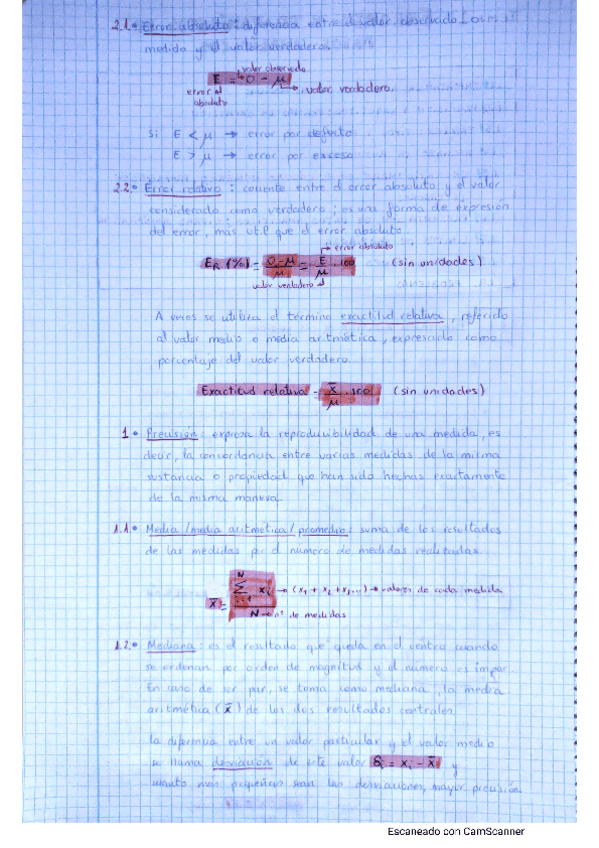 2.1.• Error absoluto : diferencia entre el valor observado o
medido y el valor verdadero.
valor observado
E = O - μ → valor verdadero.
error absoluto
Si E < μ → error por defecto
E > μ → error por exceso
2.2.• Error relativo : cociente entre el error absoluto y el valor
considerado como verdadero ; es una forma de expresión
del error, más útil que el error absoluto.
→ error absoluto
ER (%) = O-μ / μ = E / μ · 100 (sin unidades)
valor verdadero
A veces se utiliza el término exactitud relativa , referido
al valor medio o media aritmética , expresado como
porcentaje del valor verdadero.
Exactitud relativa = x̄ / μ · 100 (sin unidades)
1 • Precisión : expresa la reproducibilidad de una medida, es
decir, la concordancia entre varias medidas de la misma
sustancia o propiedad que han sido hechas exactamente
de la misma manera.
1.1.• Media / media aritmética / promedio : suma de los resultados
de las medidas por el número de medidas realizadas.
x̄ = N ∑ i=1 xi → (x1 + x2 + x3...) → valores de cada medida
N → nº de medidas
1.2.• Mediana : es el resultado que queda en el centro cuando
se ordenan por orden de magnitud y el número es impar.
En caso de ser par, se toma como mediana , la media
aritmética (x̄) de los dos resultados centrales.
La diferencia entre un valor particular y el valor medio
se llama desviación de este valor δi = xi - x̄ y
cuanto más pequeñas sean las desviaciones, mayor precisión.
Escaneado con CamScanner